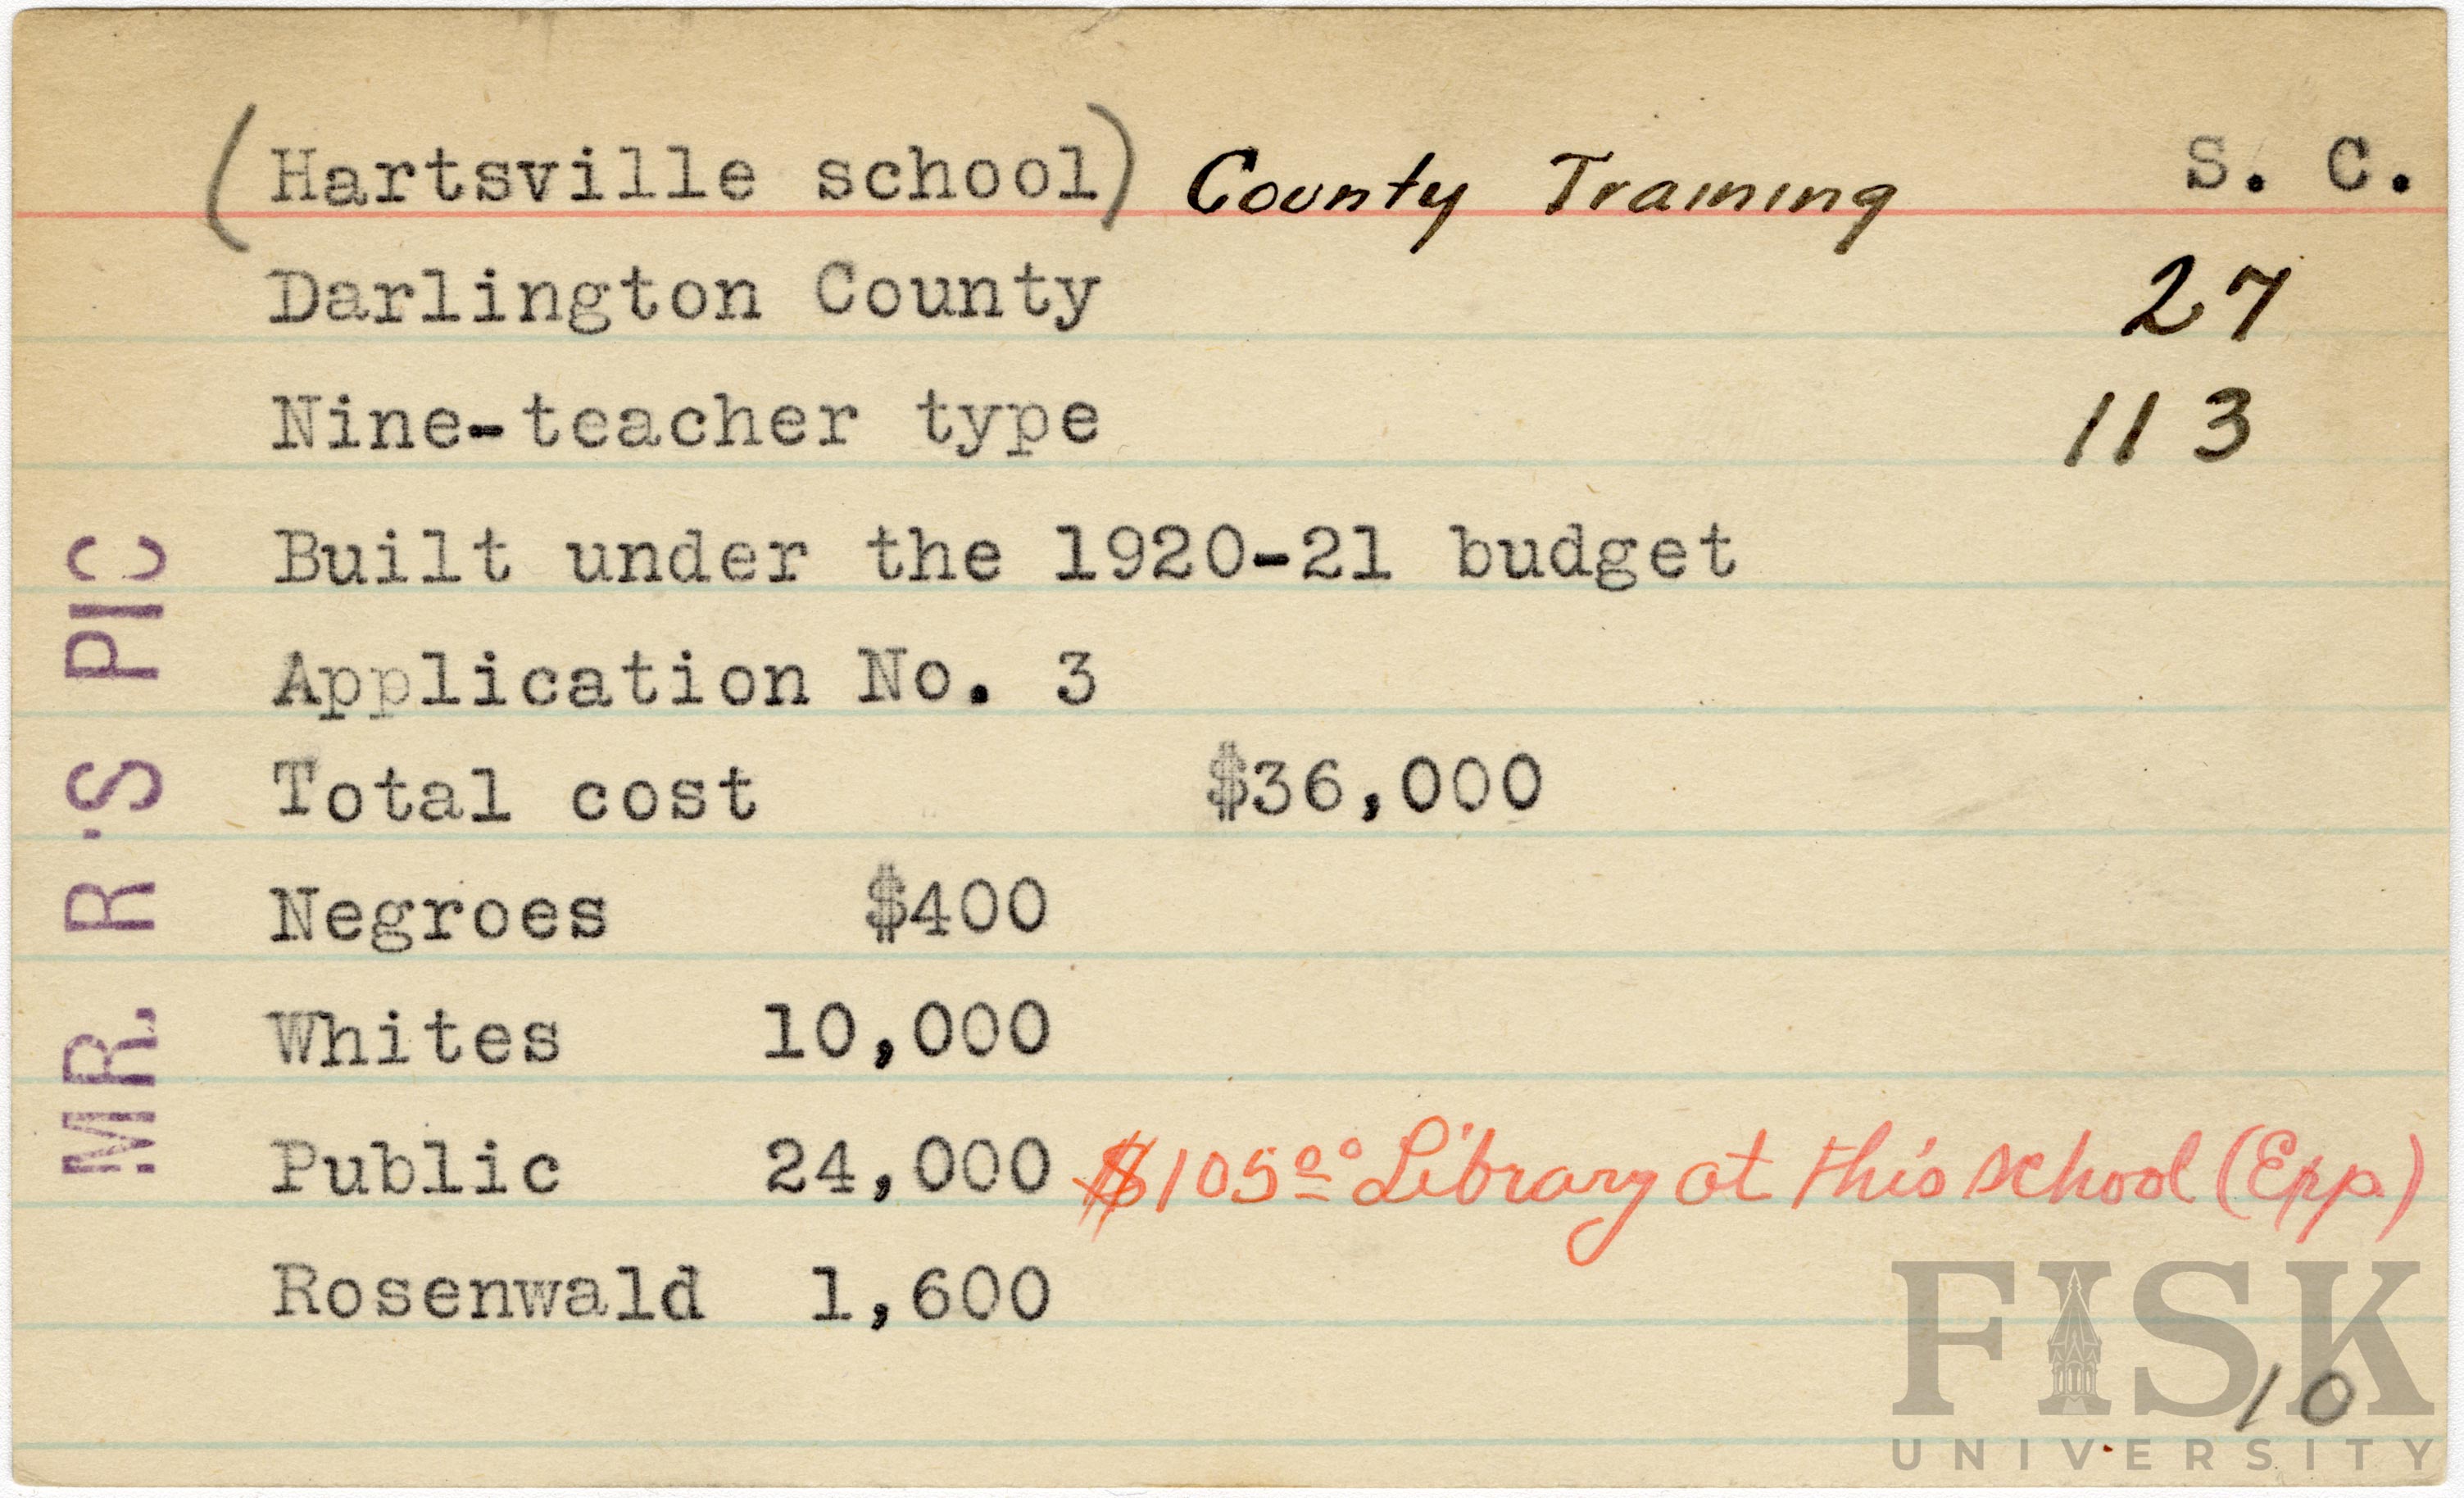 (Hartsville school) County Training S. C.
Darlington County 27
Nine-teacher type 113
Built under the 1920-21 budget
Application No. 3
Total cost $36,000
Negroes $400
Whites 10,000
Public 24,000 $105.00 Library at this school (Epp.)
Rosenwald 1,600
10
MR. R'S PIC
FISK
UNIVERSITY